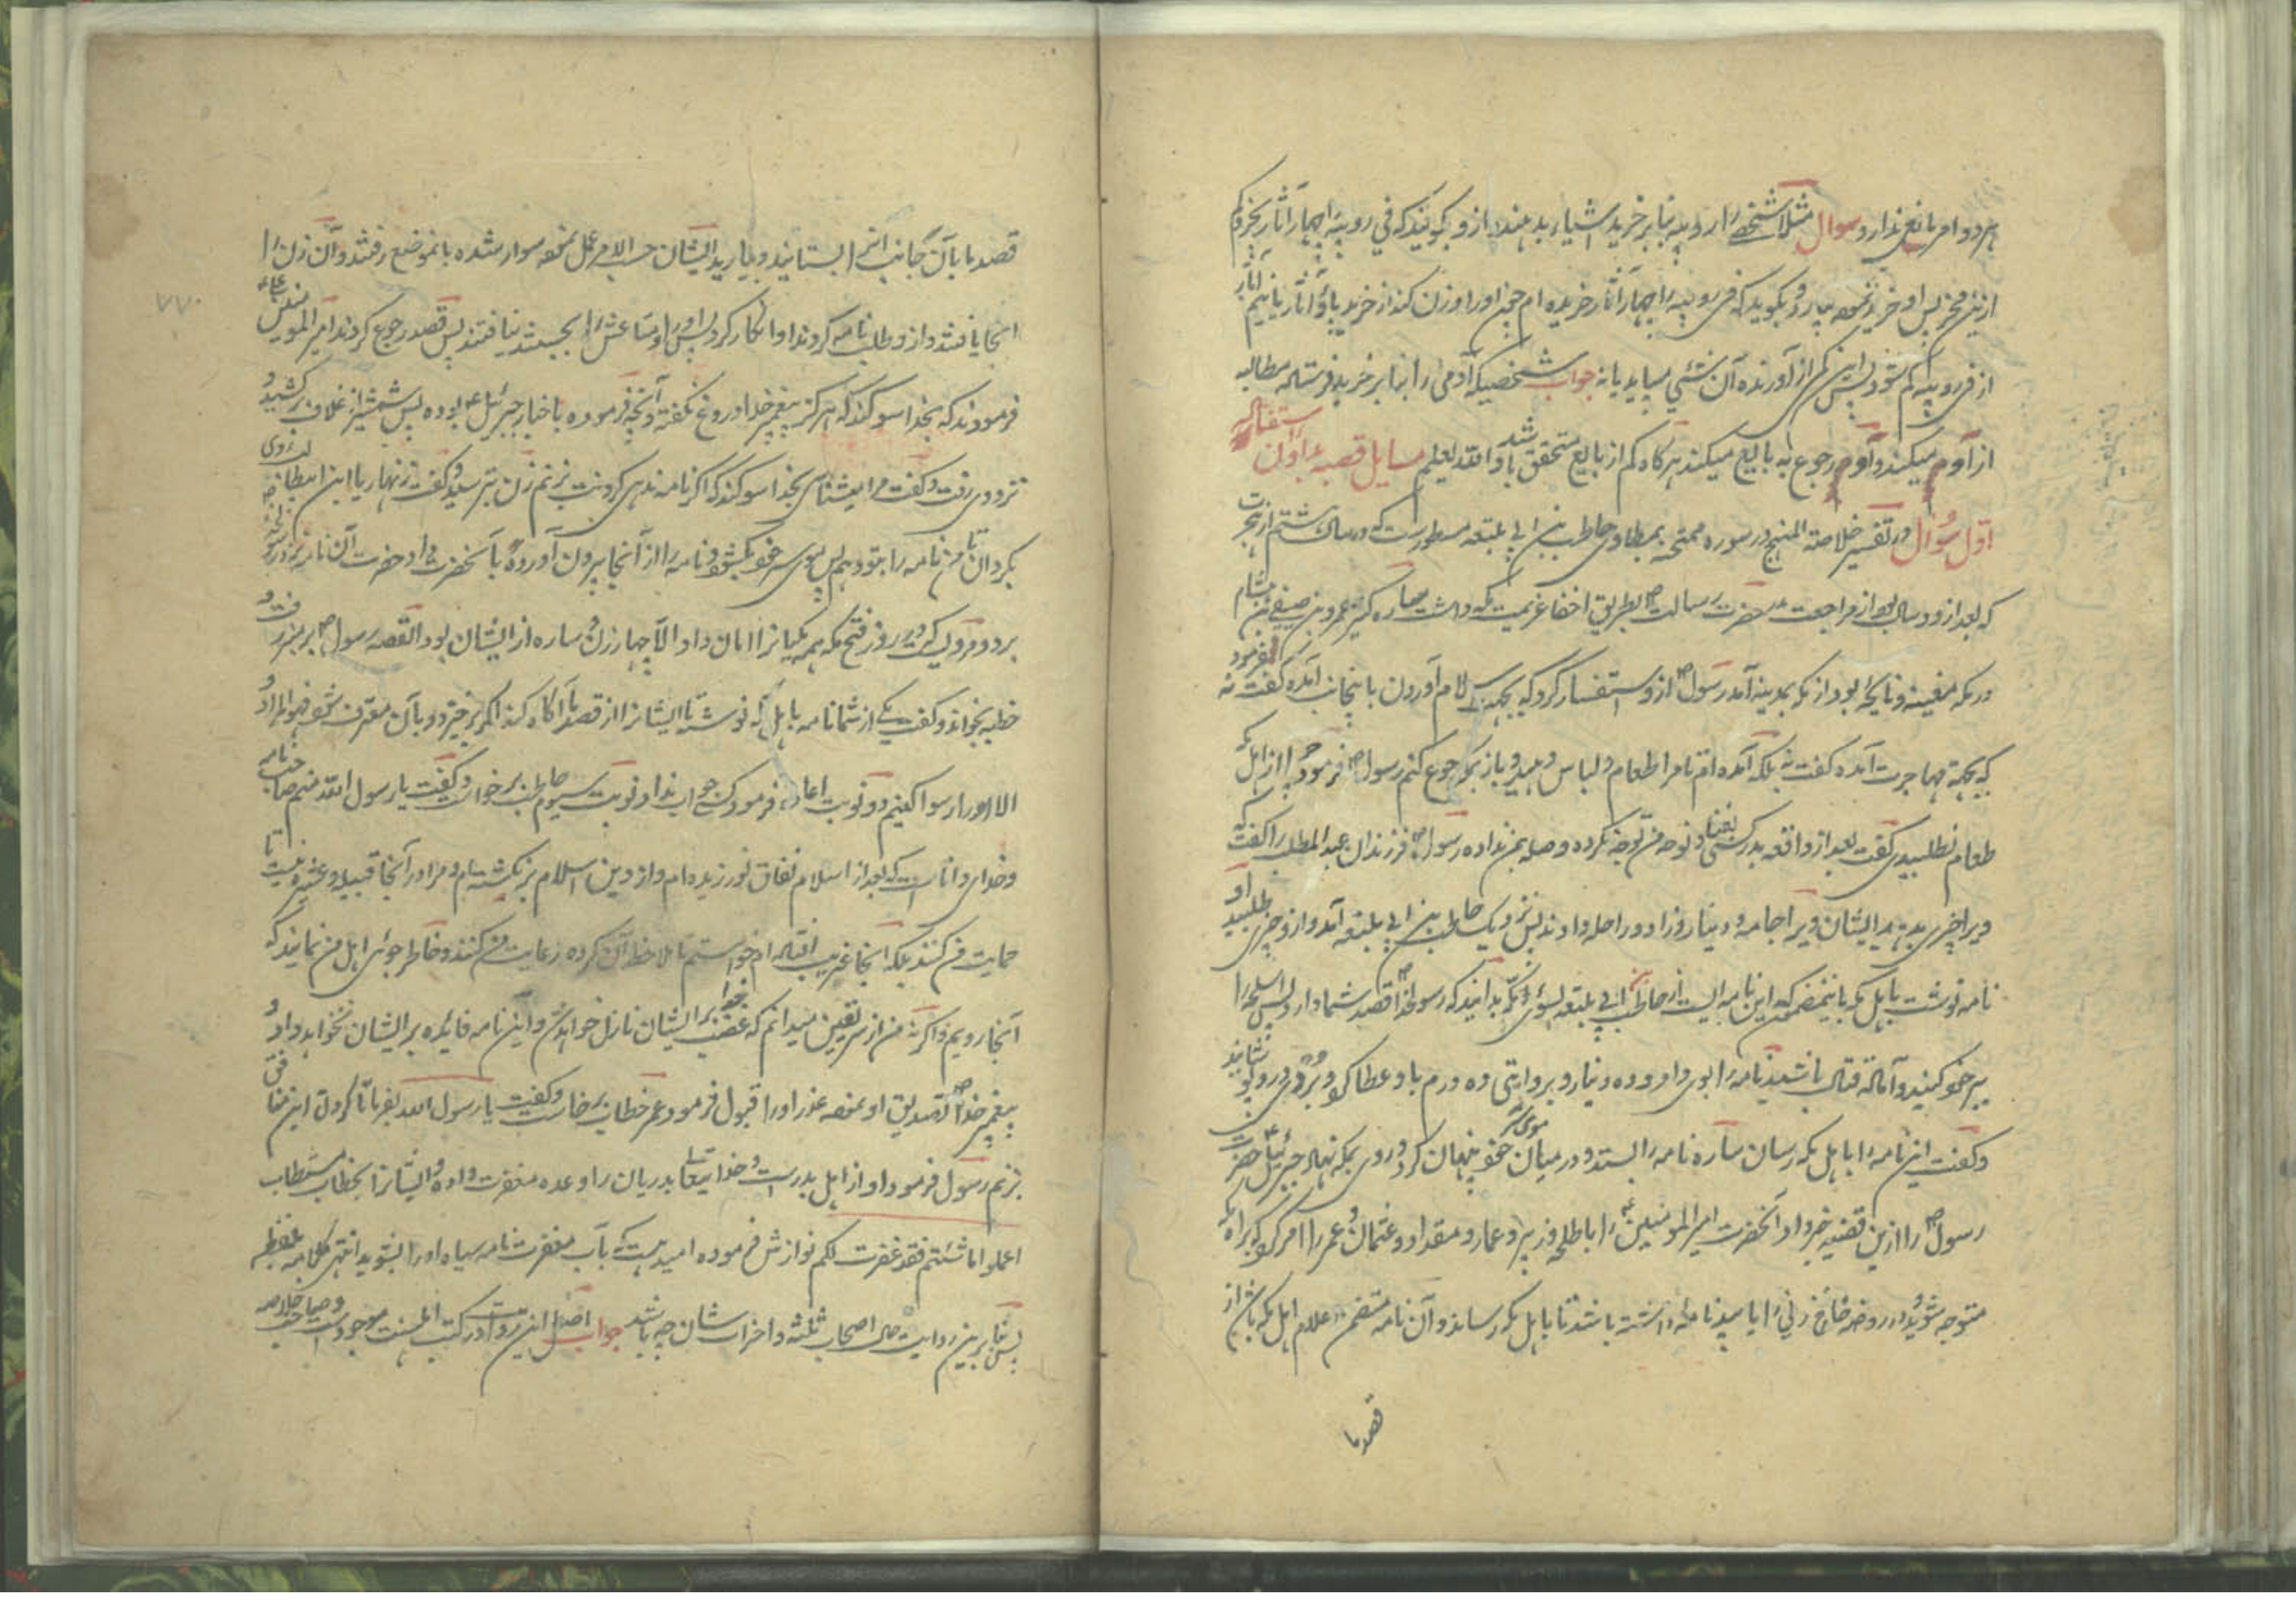 هر دو امر مانع ندارد سوال مثلا شخصے را روپیه بنابر خرید اشیا بدهند و ازو بگویند که فی روپیه چهار آثار بخر و کم
ازین مخر پس او خرید نموده بیارد و بگوید که فی روپیه چهار آثار خریده‌ام چون او را وزن کنند از خرید پاؤ آثار یا نیم آثار
از فی روپیه کم شود پس این کمی از آورنده آن شئی میباید یا نه جواب شخصیکه آدمی را بنابر خرید فرستاده مطالبه
از آدم میکند و آدم رجوع به بایع میکند هرگاه کم از بایع متحقق شد باد والله یعلم مسایل قصبه
اول سوال در تفسیر خلاصة المنهج در سوره ممتحنه بمطاوی حاطب بن ابی بلتعه مسطورست که در سال هشتم از هجرت
که بعد از دو سال بود از مراجعت بدر حضرت رسالت ص بطریق اخفا عزیمت مکه داشت ساره کنیز عمرو بن صیفی بن هشام
در مکه مغنیه و نایحه بود از مکه بمدینه آمد رسول ص ازو استفسار کرد که بجهت اسلام آوردن باینجانب آمده گفت نه فرمود
که بجهة مهاجرت آمده گفت نه بلکه آمده‌ام تا مرا طعام و لباس دهید و باز بمکه رجوع کنم رسول ص فرمود چرا از اهل مکه
طعام نطلبیدی گفت بعد از واقعه بدر کسی بغنا و نوحه من توجه نکرده و صله بمن نداده رسول ص فرزندان عبدالمطلب را گفت که
ویرا چیزی بدهید ایشان ویرا جامه و دینار و زاد و راحله دادند پس نزدیک حاطب بن ابی بلتعه آمد و ازو چیزی طلبید او
نامه نوشت باهل مکه باینمضمون که این نامه ایست از حاطب بن ابی بلتعه بسوی اهل مکه بدانید که رسول خدا ص قصد شما دارد پس اسلحه را
بر خود کنید و آماده قتال باشید نامه را بوی داد و ده دینار و بروایتی ده درم باو عطا کرد و بُردی درو پوشانید
و گفت این نامه را باهل مکه رسان ساره نامه را بستد و در میان موی سر خود پنهان کرد و روی بمکه نهاد جبرئیل ع حضرت
رسول ص را ازین قضیه خبر داد آنحضرت امیر المومنین ع را با طلحه و زبیر و عمار و مقداد و عثمان و عمر را امر کرد که براه مکه
متوجه شوید و در روضه خاخ زنی را یابید نامه داشته باشد تا باهل مکه رساند و آن نامه متضمن اعلام اهل مکه باشد از
قصد ما
قصد ما بآن جانب انرا بستانید و بیارید ایشان حسب الامر عمل نموده سوار شده بانموضع رفتند و آن زن را
انجا یافتند و ازو طلب نامه کردند او انکار کرد پس او را و متاعش را بجستند نیافتند پس قصد رجوع کردند امیر المومنین ع
فرمودند که بخدا سوگند که هرگز پیغمبر خدا دروغ نگفته و آنچه فرموده باخبار جبرئیل ع بوده پس شمشیر از غلاف برکشید و
نزد وی رفت و گفت مرا میشناسی بخدا سوگند که اگر نامه ندهی گردنت بزنم زن بترسید و گفت زنهار یا ابن ابیطالب روی
بگردان تا من نامه را بتو دهم پس موی سر خود بگشود و نامه را از آنجا بیرون آورده بآنحضرت داد حضرت آن نامه نزد رسول خدا ص
برد و مرویست که در روز فتح مکه همه مکیانرا امان داد الا چهار زن و ساره از ایشان بود القصه رسول ص بر منبر رفت و
خطبه بخواند و گفت یکی از شما نامه باهل مکه نوشته تا ایشانرا از قصد ما آگاه کند اگر برخیزد و بآن معترف شود فهو المراد و
الا او را رسوا کنیم دو نوبت اعاده فرمود کسی جواب نداد نوبت سیوم حاطب برخواست و گفت یا رسول الله منم صاحب نامه
و خدای داناست که بعد از اسلام نفاق نورزیده‌ام و از دین اسلام برنگشته‌ام و مرا در آنجا قبیله و عشیره نیست تا
حمایت من کنند بلکه انجا غریب افتاده‌ام خواستم تا ملاحظه آن کرده رعایت من کنند و خاطر جوئی اهل من نمایند که
آنجا رویم و اگر نه من از سر یقین میدانم که غضب خدا بر ایشان نازل خواهد شد و این نامه فائده بر ایشان نخواهد داد و
پیغمبر خدا ص تصدیق او نموده عذر او را قبول فرمود و عمر خطاب برخاست و گفت یا رسول الله بفرما تا گردن این منافق
بزنم رسول فرمود او از اهل بدرست و خدا یتعالی بدریان را وعده مغفرت داده و ایشانرا بخطاب مستطاب
اعملوا ما شئتم فقد غفرت لکم نوازش فرموده امید هست که بآب مغفرت نامه سیاه او را بشوید انتهی کلامه بلفظه
پس بنابرین روایت حال اصحاب ثلثه و احزاب شان چه باشد جواب اصل این روایت در کتب اهلسنت موجودست و صاحب خلاصه